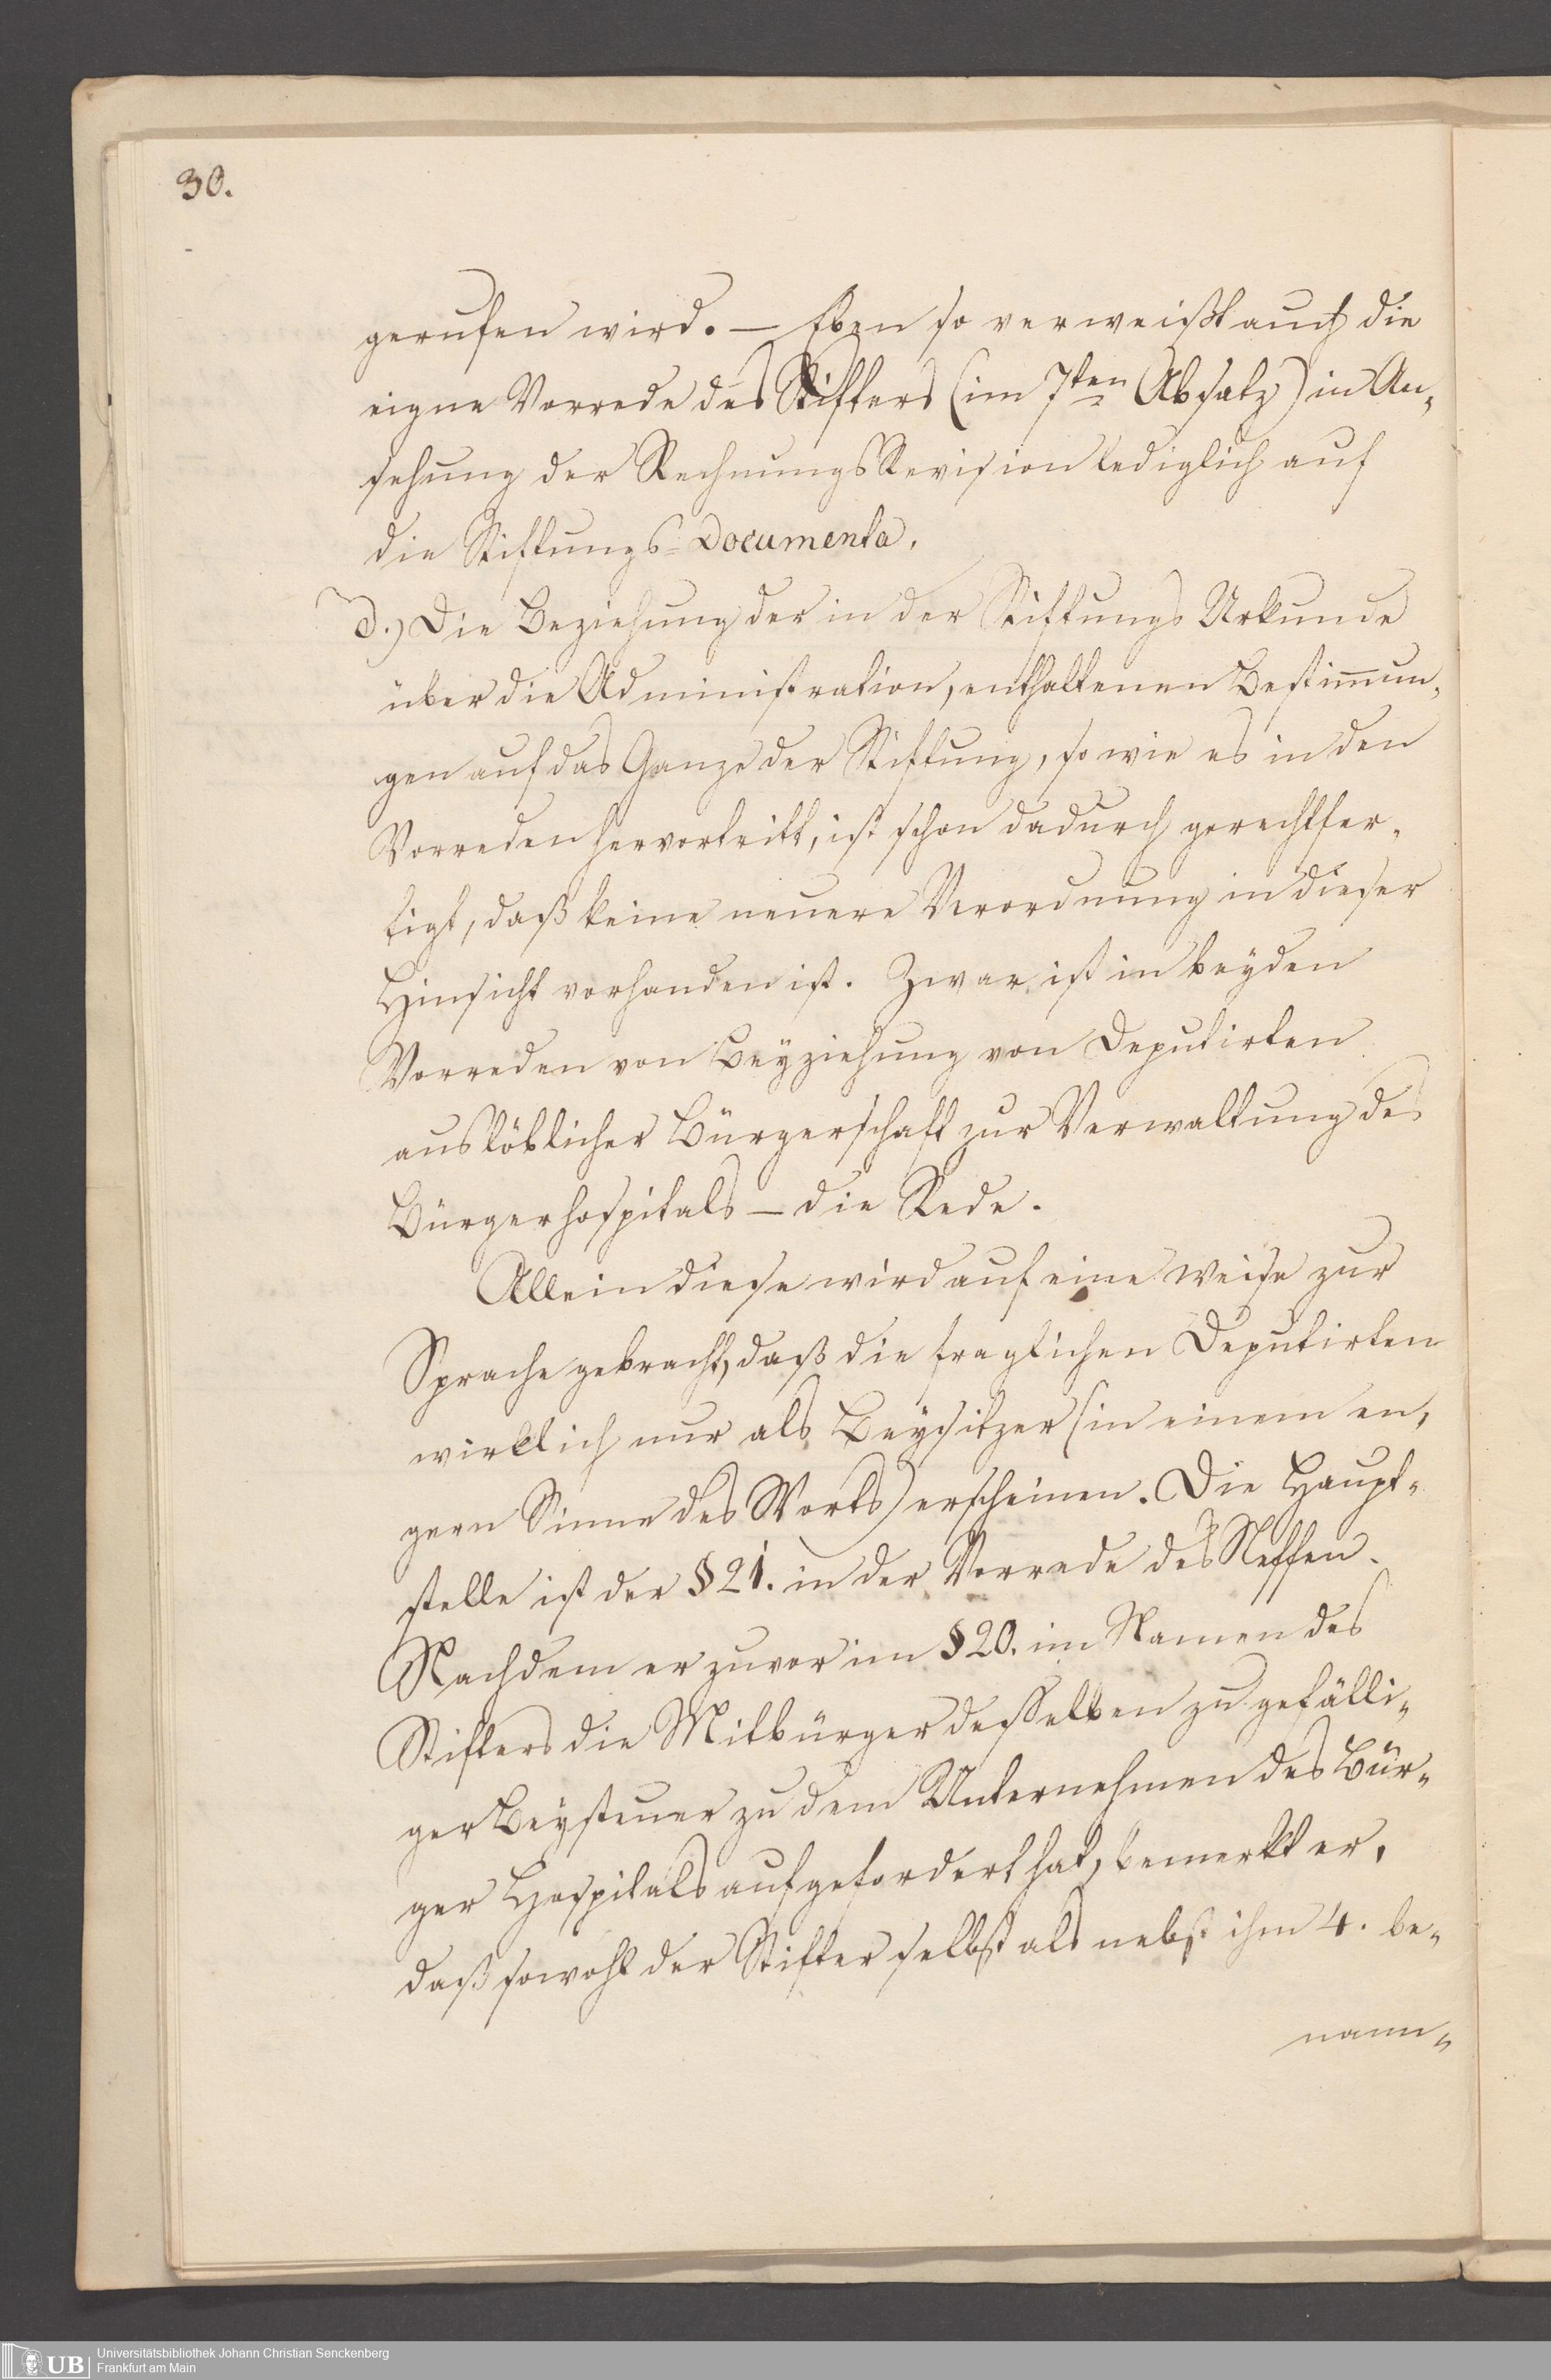 30.
gerufen wird. — Eben so verweißt auch die
eigne Vorrede des Stifters (im 7ten Absatz) in An„
sehung der Rechnungs Revision lediglich auf
die Stiftungs-Documenta.
d.) Die Beziehung der in der Stiftungs Urkunde
über die Administration, enthaltenen Bestim̅un„
gen auf das Ganze der Stiftung, so wie es in den
Vorreden hervortritt, ist schon dadurch gerechtfer„
tigt, daß keine neuere Verordnung in dieser
Hinsicht vorhanden ist. Zwar ist in beyden
Vorreden von Beyziehung von Deputirten
aus löblicher Bürgerschaft zur Verwaltung des
Bürgerhospitals — die Rede.
Allein diese wird auf eine Weise zur
Sprache gebracht, daß die fraglichen Deputirten
wirklich nur als Beysitzer (in einem en„
gern Sinne des Worts) erscheinen. Die Haupt„
stelle ist der § 21. in der Vorrede des Neffen.
Nachdem er zuvor im § 20. im Namen des
Stifters die Mitbürger desselben zu gefälli„
ger Beysteuer zu dem Unternehmen des Bür„
ger Hospitals aufgefordert hat, bemerkt er,
daß sowohl der Stifter selbst als nebst ihm 4. be„
nann„
UB
Universitätsbibliothek Johann Christian Senckenberg
Frankfurt am Main